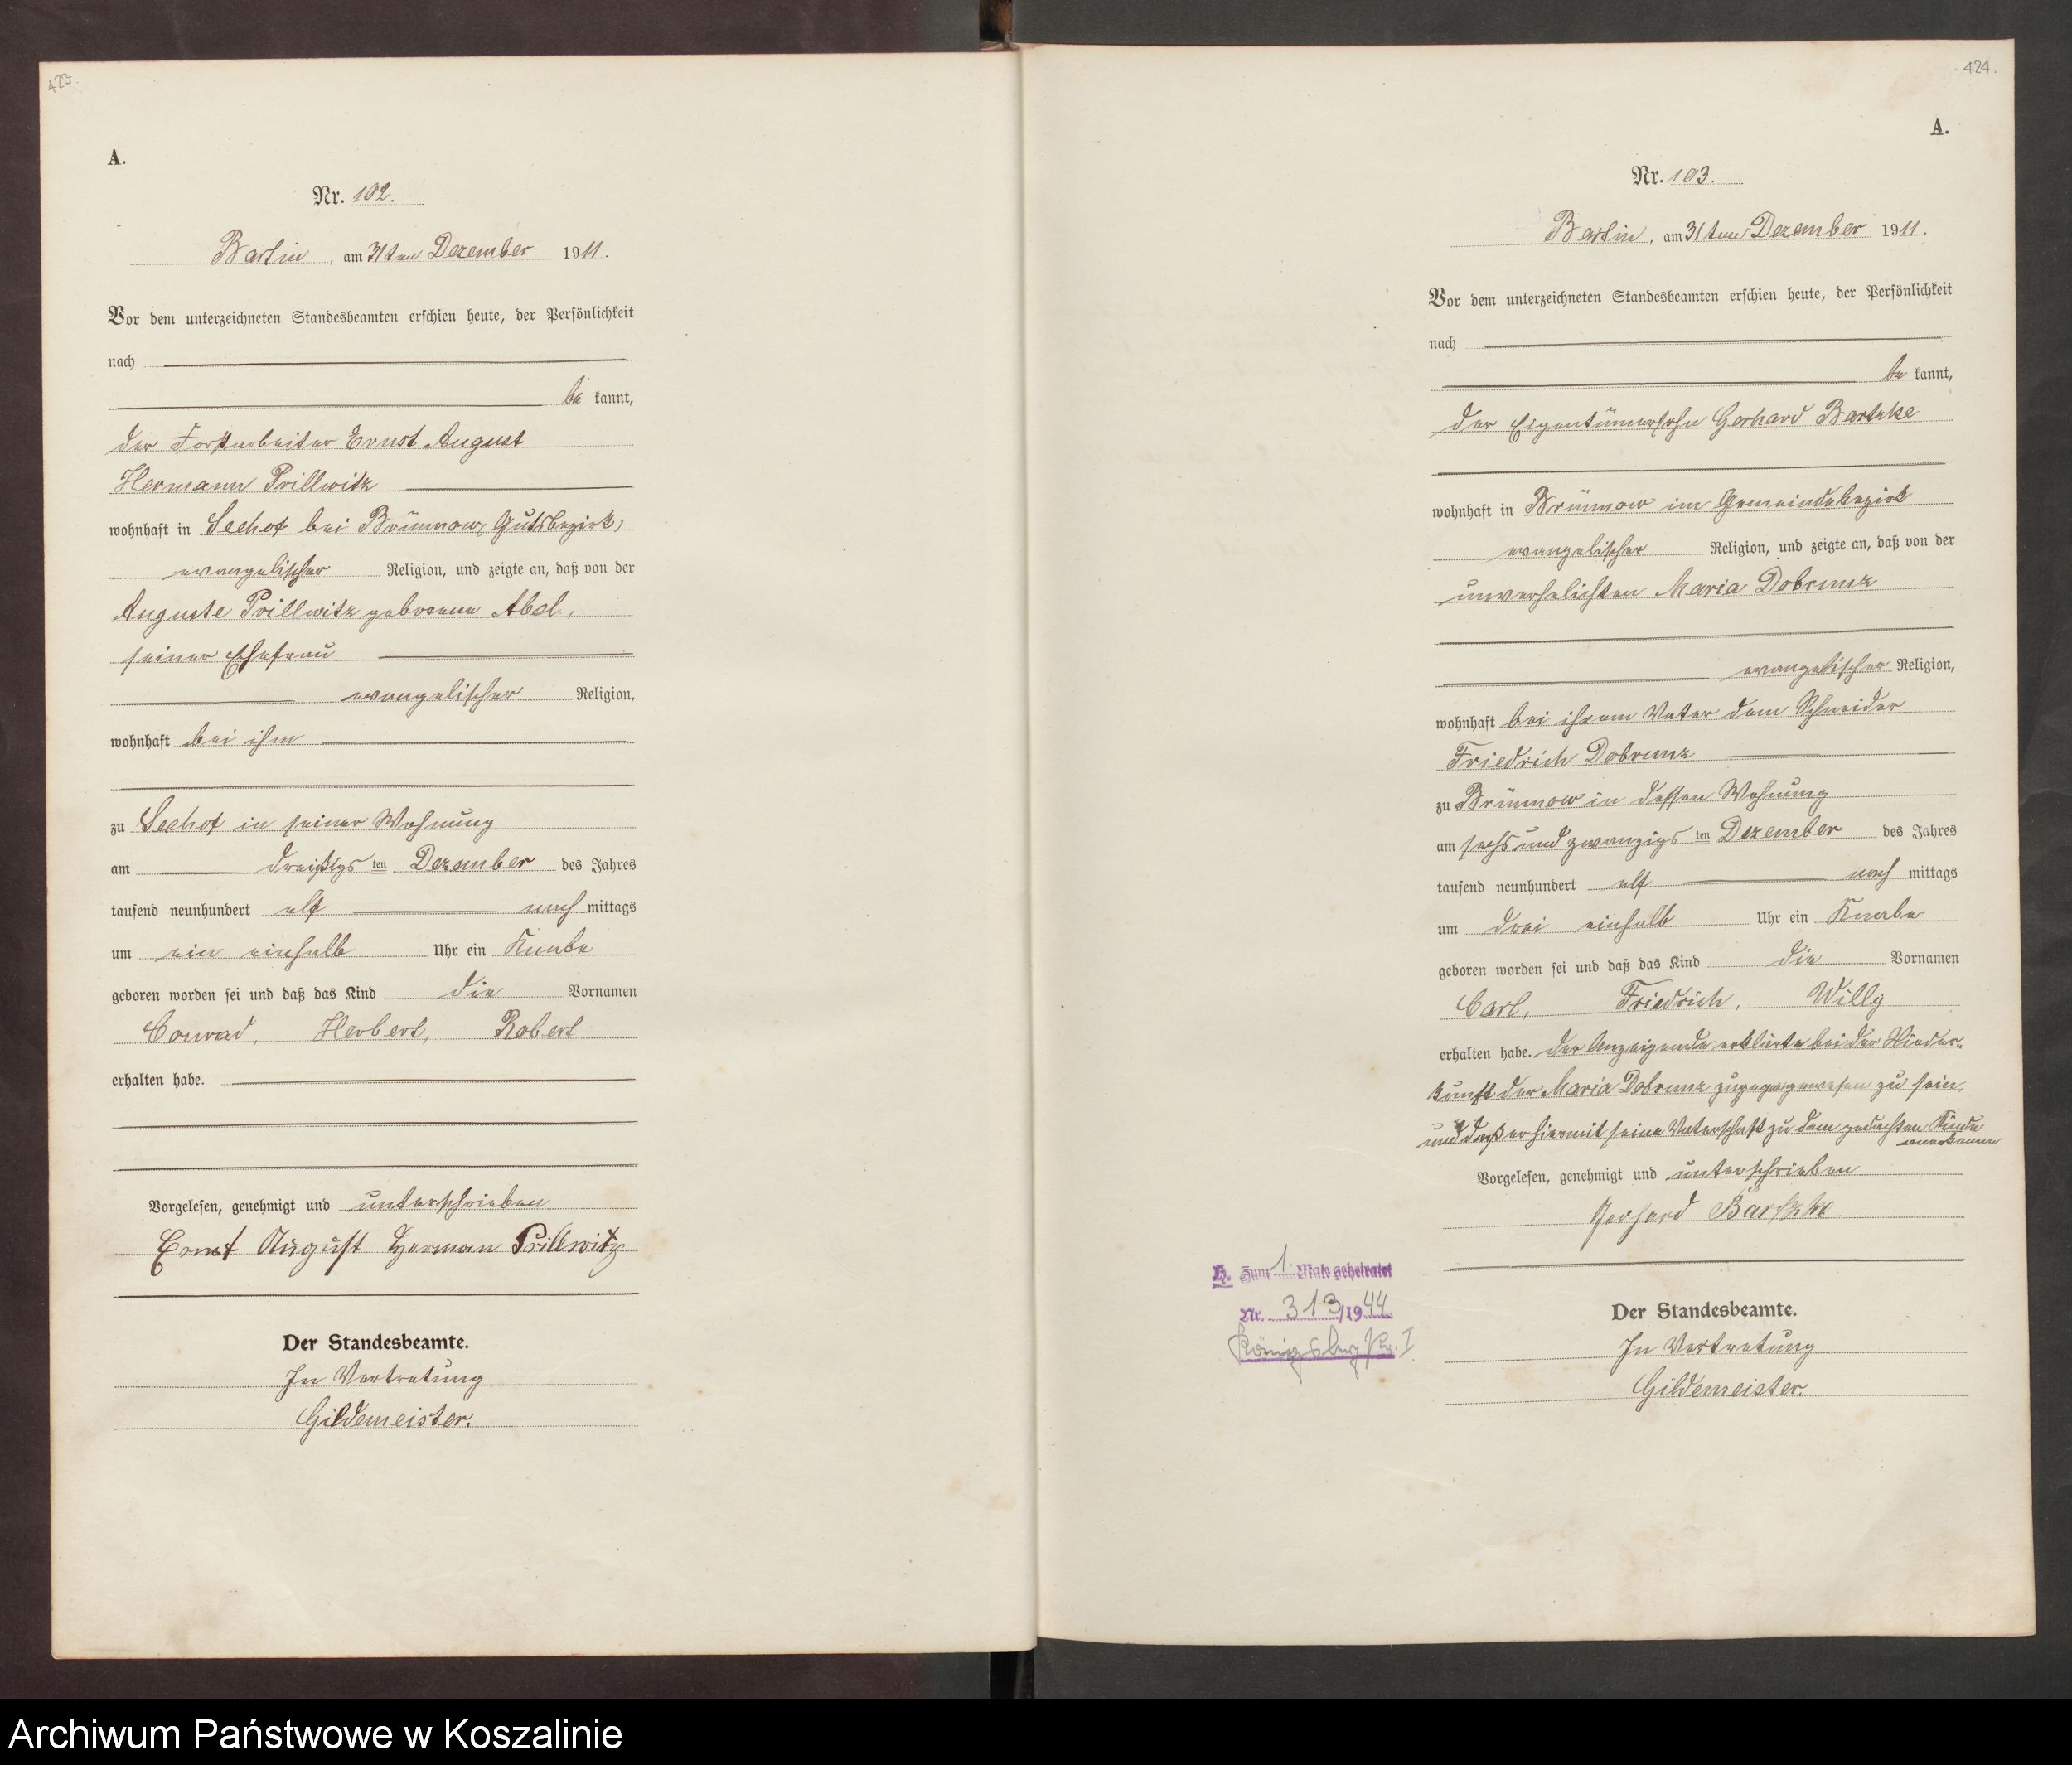 423.
A.
Nr. 102.
Bartin, am 31ten Dezember 1911.
Vor dem unterzeichneten Standesbeamten erschien heute, der Persönlichkeit
nach
be kannt,
der Forstarbeiter Ernst August
Hermann Prillwitz
wohnhaft in Seehof bei Brünnow, Gutsbezirk,
evangelischer Religion, und zeigte an, daß von der
Auguste Prillwitz geborene Abel,
seiner Ehefrau
evangelischer Religion,
wohnhaft bei ihm
zu Seehof in seiner Wohnung
am dreißigs ten Dezember des Jahres
tausend neunhundert elf nach mittags
um ein einhalb Uhr ein Knabe
geboren worden sei und daß das Kind die Vornamen
Conrad, Herbert, Robert
erhalten habe.
Vorgelesen, genehmigt und unterschrieben
Ernst August Herman Prillwitz
Der Standesbeamte.
In Vertretung
Gildemeister.
424.
A.
Nr. 103.
Bartin, am 31ten Dezember 1911.
Vor dem unterzeichneten Standesbeamten erschien heute, der Persönlichkeit
nach
be kannt,
der Eigentümersohn Gerhard Bartzke
wohnhaft in Brünnow im Gemeindebezirk
evangelischer Religion, und zeigte an, daß von der
unverehelichten Maria Dobrunz
evangelischer Religion,
wohnhaft bei ihrem Vater dem Schneider
Friedrich Dobrunz
zu Brünnow in dessen Wohnung
am sechsundzwanzigs ten Dezember des Jahres
tausend neunhundert elf nach mittags
um drei einhalb Uhr ein Knabe
geboren worden sei und daß das Kind die Vornamen
Carl, Friedrich, Willy
erhalten habe. Der Anzeigende erklärte bei der Nieder-
kunft der Maria Dobrunz zugegen gewesen zu sein,
und daß er hiermit seine Vaterschaft zu dem gedachten Kinde
anerkenne
Vorgelesen, genehmigt und unterschrieben
Gerhard Bartzke
H. Zum 1. Male geheiratet
Nr. 313/1944
Königsberg/Pr. I
Der Standesbeamte.
In Vertretung
Gildemeister.
Archiwum Państwowe w Koszalinie